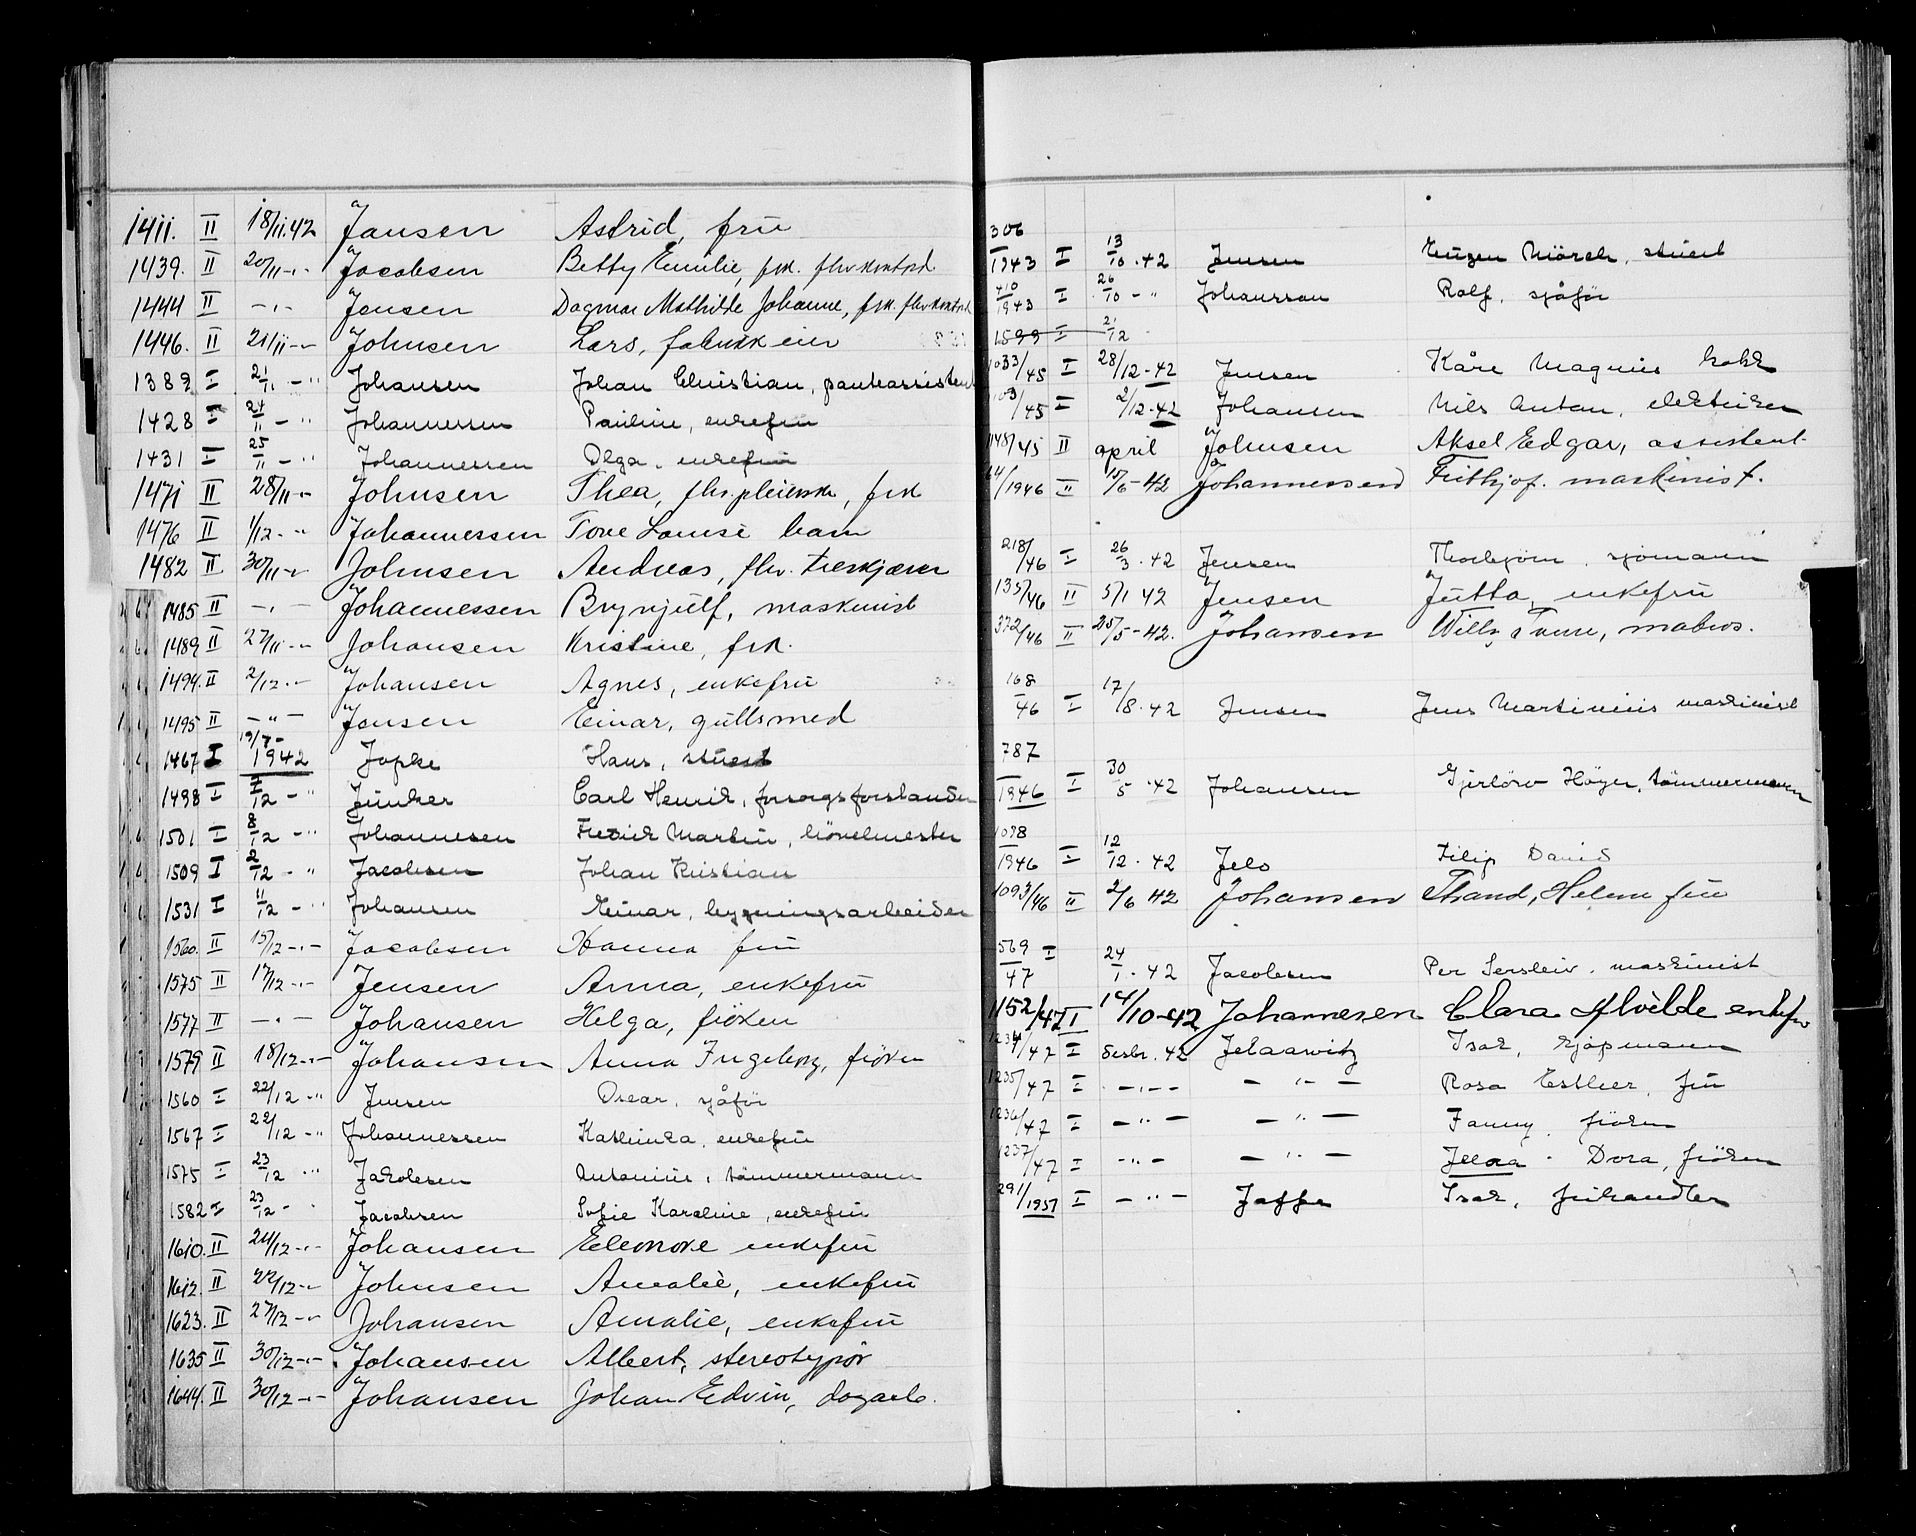 1411. II 18/11.42 Jansen Astrid, fru
1439. II 20/11 -"- Jacobsen Betty Emilie, frk. fhv kontord.
1444 II -"- Jensen Dagmar Mathilde Johanne, frk. fhv kontord
1446. II 21/11 -"- Johnsen Lars, fabrikkeier
1389 I 21/11 -" Johansen Johan Christian, pantassistent
1428 I 24/11 -" Johannessen Pauline, enkefru
1431 I 25/11 -" Johannessen Olga, enkefru
1471 II 28/11 -"- Johnsen Thea, fhv. pleierske, frk
1476 II 1/12 -" Johannessen Tove Louise barn
1482 II 30/11 -"- Johnsen Andreas, fhv. treskjærer
1485 II -"- Johannessen Brynjulf, maskinist
1489 II 27/11 -"- Johansen Kristine, frk.
1494. II 2/12 -"- Johansen Agnes, enkefru
1495 II -"- Jensen Einar, gullsmed
1467 I 19/7 - 1942 Jopke Hans, stuert
1498 I 7/12 -" Junker Carl Henrik, forsorgsforstander
1501 I 8/12 -" Johannesen Fredrik Martin, bøvelmester
1509 I 2/12 -" Jacobsen Johan Kristian
1531 I 11/12 -" Johansen Einar, bygningsarbeider
1560. II 15/12 -"- Jacobsen Hanna fru
1575 II 17/12 -"- Jensen Anna, enkefru
1577 II -"- Johansen Helga, frøken
1579 II 18/12 -"- Johansen Anna Ingeborg, frøken
1560 I 22/12 -" Jensen Oscar, sjåfør
1567 I 22/12 -" Johannessen Kathinka, enkefru
1575 I 23/12 " Jakobsen Antonius, tømmermann
1582 I 23/12 -" Jacobsen Sofie Karoline, enkefru
1610. II 24/12 -"- Johansen Eleonore enkefru
1612. II 22/12 -"- Johnsen Amalie, enkefru
1623. II 27/12 -"- Johansen Amalie, enkefru
1635 II 30/12 -"- Johansen Albert, stereotypør
1644. II 30/12 -"- Johansen Johan Edvin, dagarb.
306/1943 I 13/10 . 42 Jensen Eugen Mörch, stuert
410/1943 I 26/10 -" Johansson Rolf, sjåfør
1599 I 21/12
1033/45 I 28/12-42 Jensen Kåre Magnus kokk
103/45 I 2/12.42 Johansen Nils Anton, elektriker
1148/45 II april Johnsen Aksel Edgar, assistent.
64/1946 II 15/6-42 Johannessen Frithjof. maskinist.
218/46 I 26/3 . 42 Jensen Thorbjørn, sjømann
135/46 II 5/1 42 Jensen Jutta, enkefru
372/46 II 25/5-42. Johansen Willy, matros.
168/46 I 17/8.42 Jensen Jens Martinius maskinist
787/1946 I 30/5 . 42 Johansen Gjerløw Høyer, tømmermann
1098/1946 I 12/12 . 42 Jelo Filip David
1093/46 II 2/6 42 Johansen Thand, Helene fru
569/47 I 24/1 . 42 Jacobsen Per Sersleiv. maskinist
1152/47 I 14/10-42 Johannesen Clara Alvilde enkefru
1234/47 I desbr. 42 Jelaawitz Isak, kjøpmann
1235/47 I -"- -"- Rosa Esther, fru
1236/47 I -"- -"- Fanny, frøken
1237/47 I -"- -"- Dora, frøken
291/1957 I -"- Jaffe Isak, fruhandler